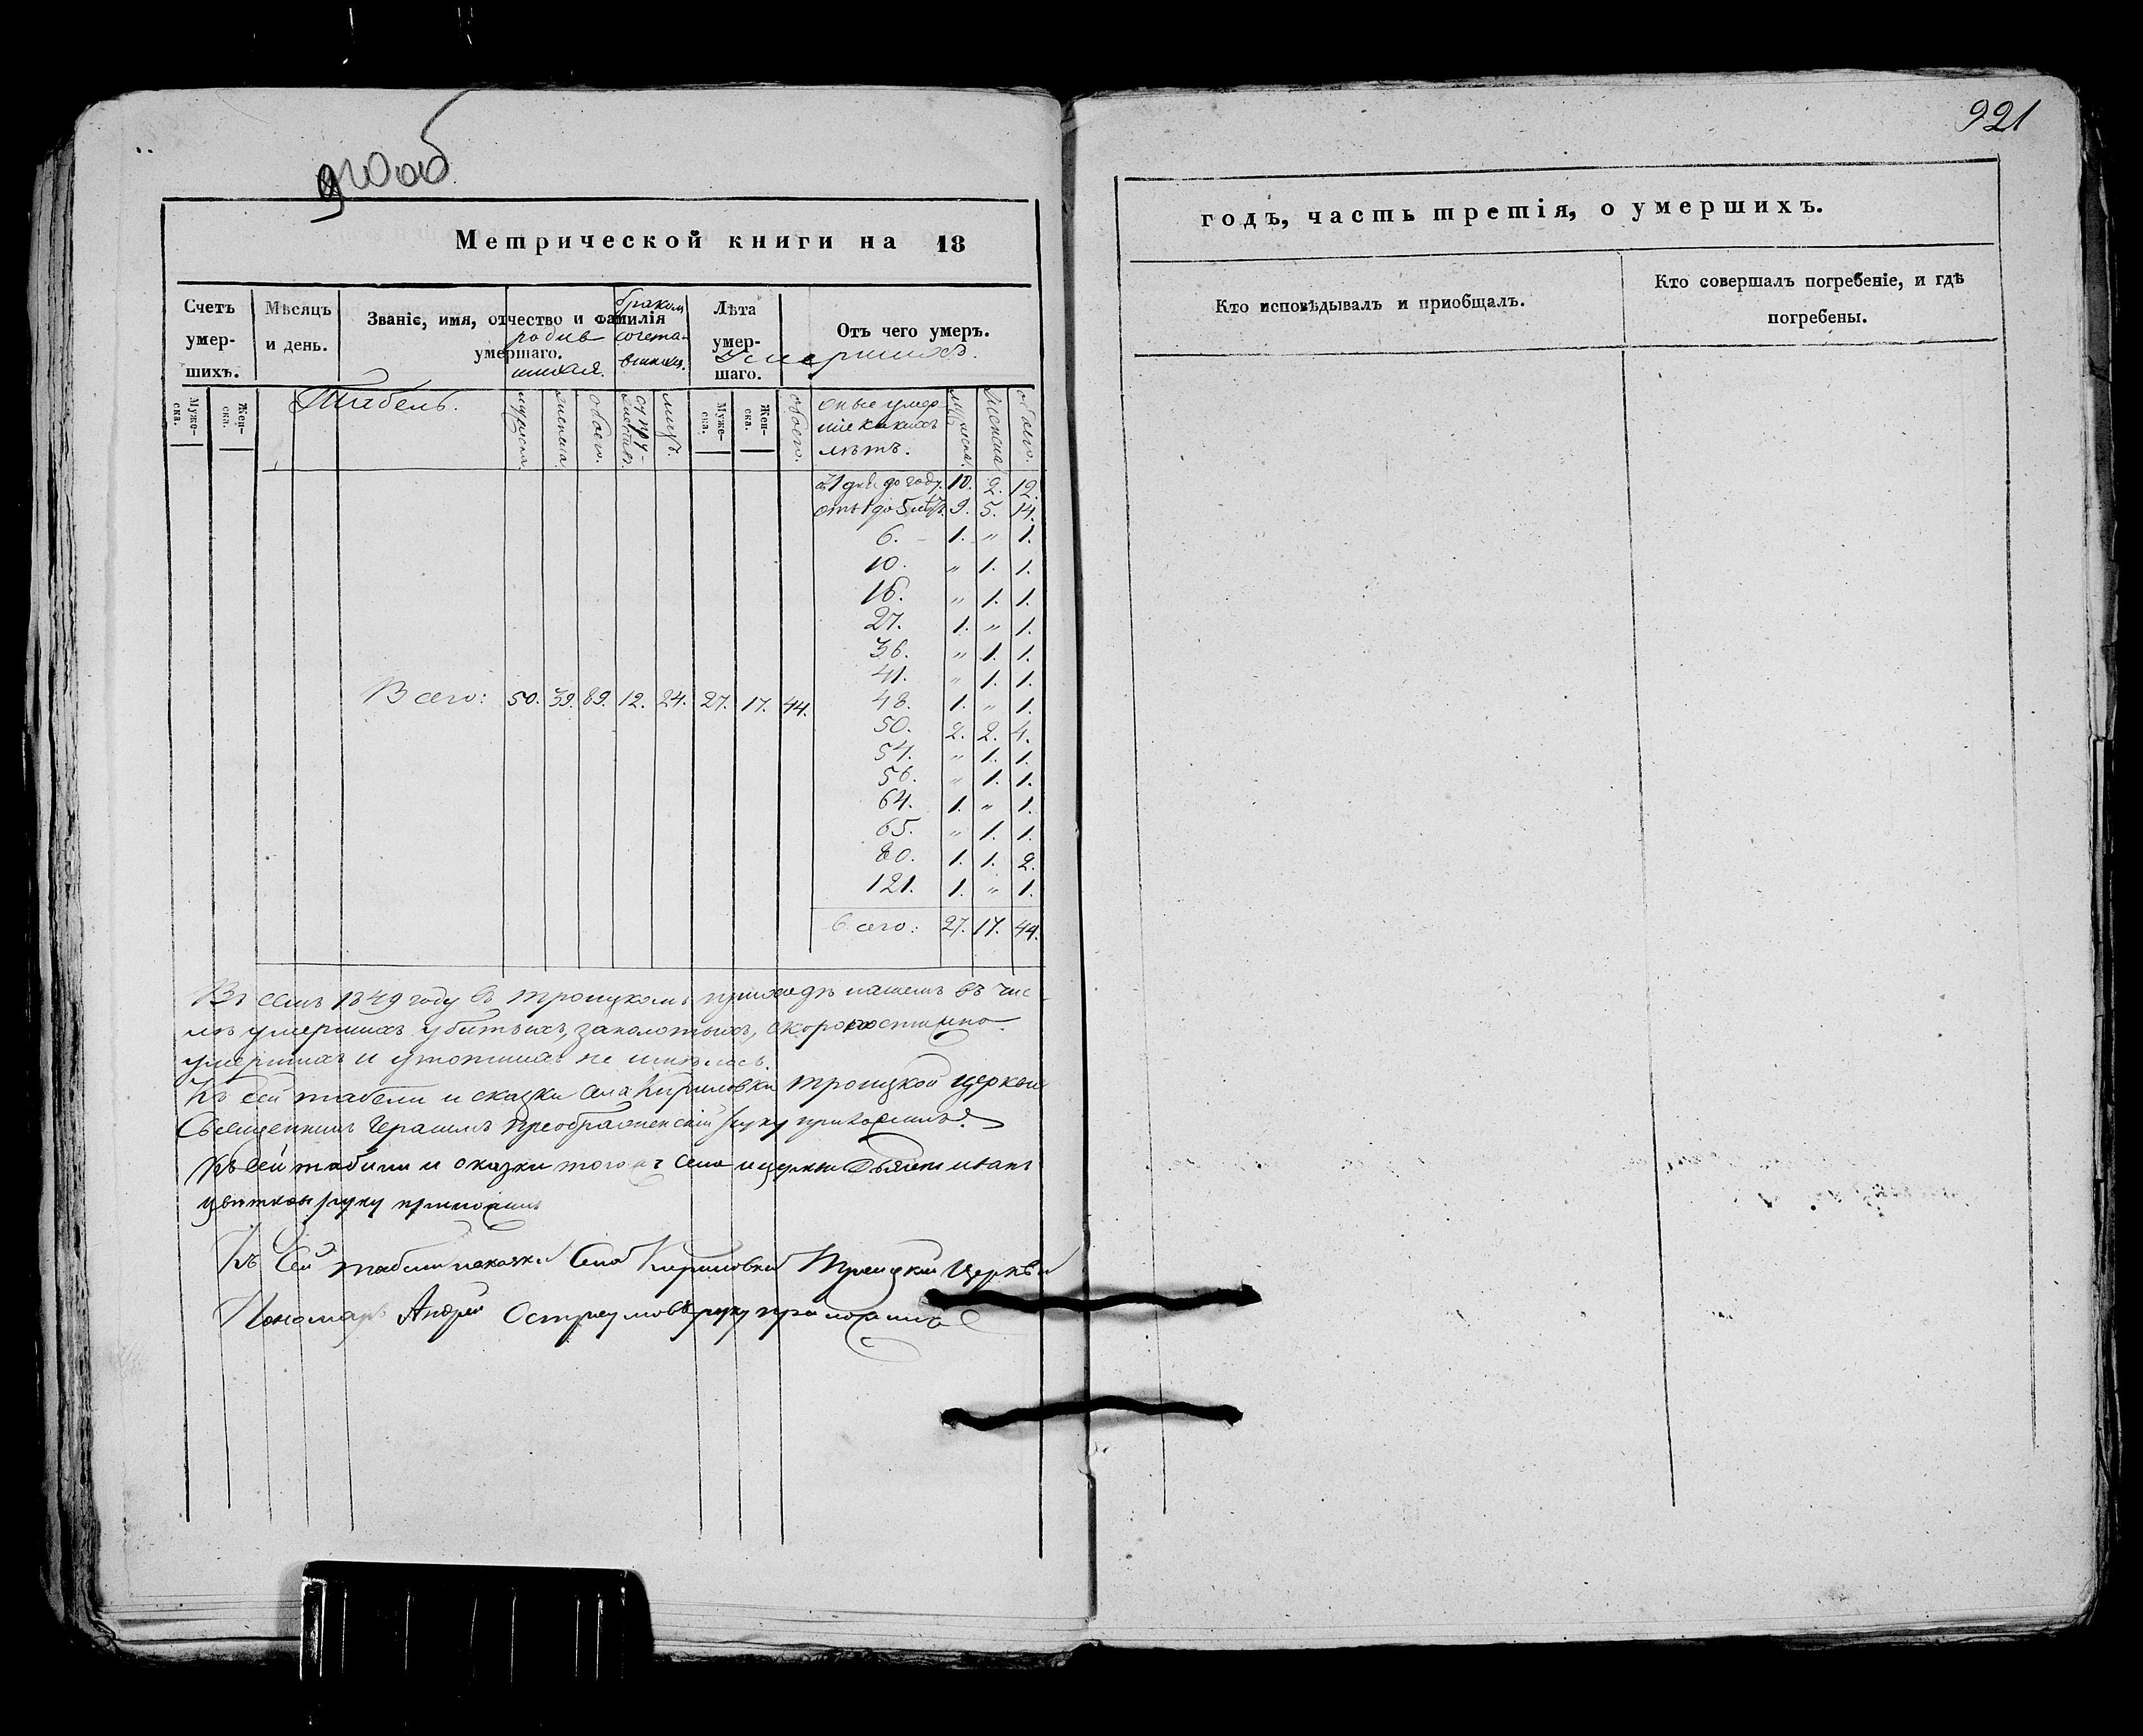 920об
Метрической книги на 18
Счетъ умер-шихъ.
Мѣсяцъ и день.
Званіе, имя, отчество и фамилія умершаго.
родив
шихся.
бракомъ
сочета
вшихся.
Лѣта умер-шаго.
Отъ чего умеръ.
Умершихъ.
Муже-ска.
Жен-ска.
Табель.
мужеска.
женска.
обоего.
супру-
жествъ.
лицъ.
Муже-ска.
Жен-ска.
обоего.
оные умер
шіе какихъ
лѣтъ.
мужеска.
женска
обоего.
отъ 1 дня до году. 10. 2. 12.
отъ 1 до 5 лѣтъ. 9. 5. 14.
6. - 1. „ 1.
10. „ 1. 1.
16. „ 1. 1.
27. 1. „ 1.
36. „ 1. 1.
41. „ 1. 1.
48. 1. „ 1.
Всего: 50. 39. 89. 12. 24. 27. 17. 44.
50. 2. 2. 4.
54. „ 1. 1.
56. „ 1. 1.
64. 1. „ 1.
65. „ 1. 1.
80. 1. 1. 2.
121. 1. „ 1.
всего: 27. 17. 44.
Въ семъ 1849 году въ троицкомъ приходѣ нашемъ въ чис
лѣ умершихъ убитыхъ, заколотыхъ, скоропостижно
умершихъ и утопшихъ не имѣлось.
Къ сей табели и сказки села Кириловки троицкой церкви
Священникъ Герасимъ Преображенскій руку приложилъ.
Къ сей табели и сказки того жъ села и церкви Дьяконъ иванъ
цвѣтковъ руку приложилъ
Къ Сей табели и сказки Села Кириловки Троицкой Церкви
Пономарь Андрей Остроумовъ руку приложилъ
921
годъ, часть третія, о умершихъ.
Кто исповѣдывалъ и пріобщалъ.
Кто совершалъ погребеніе, и гдѣ
погребены.